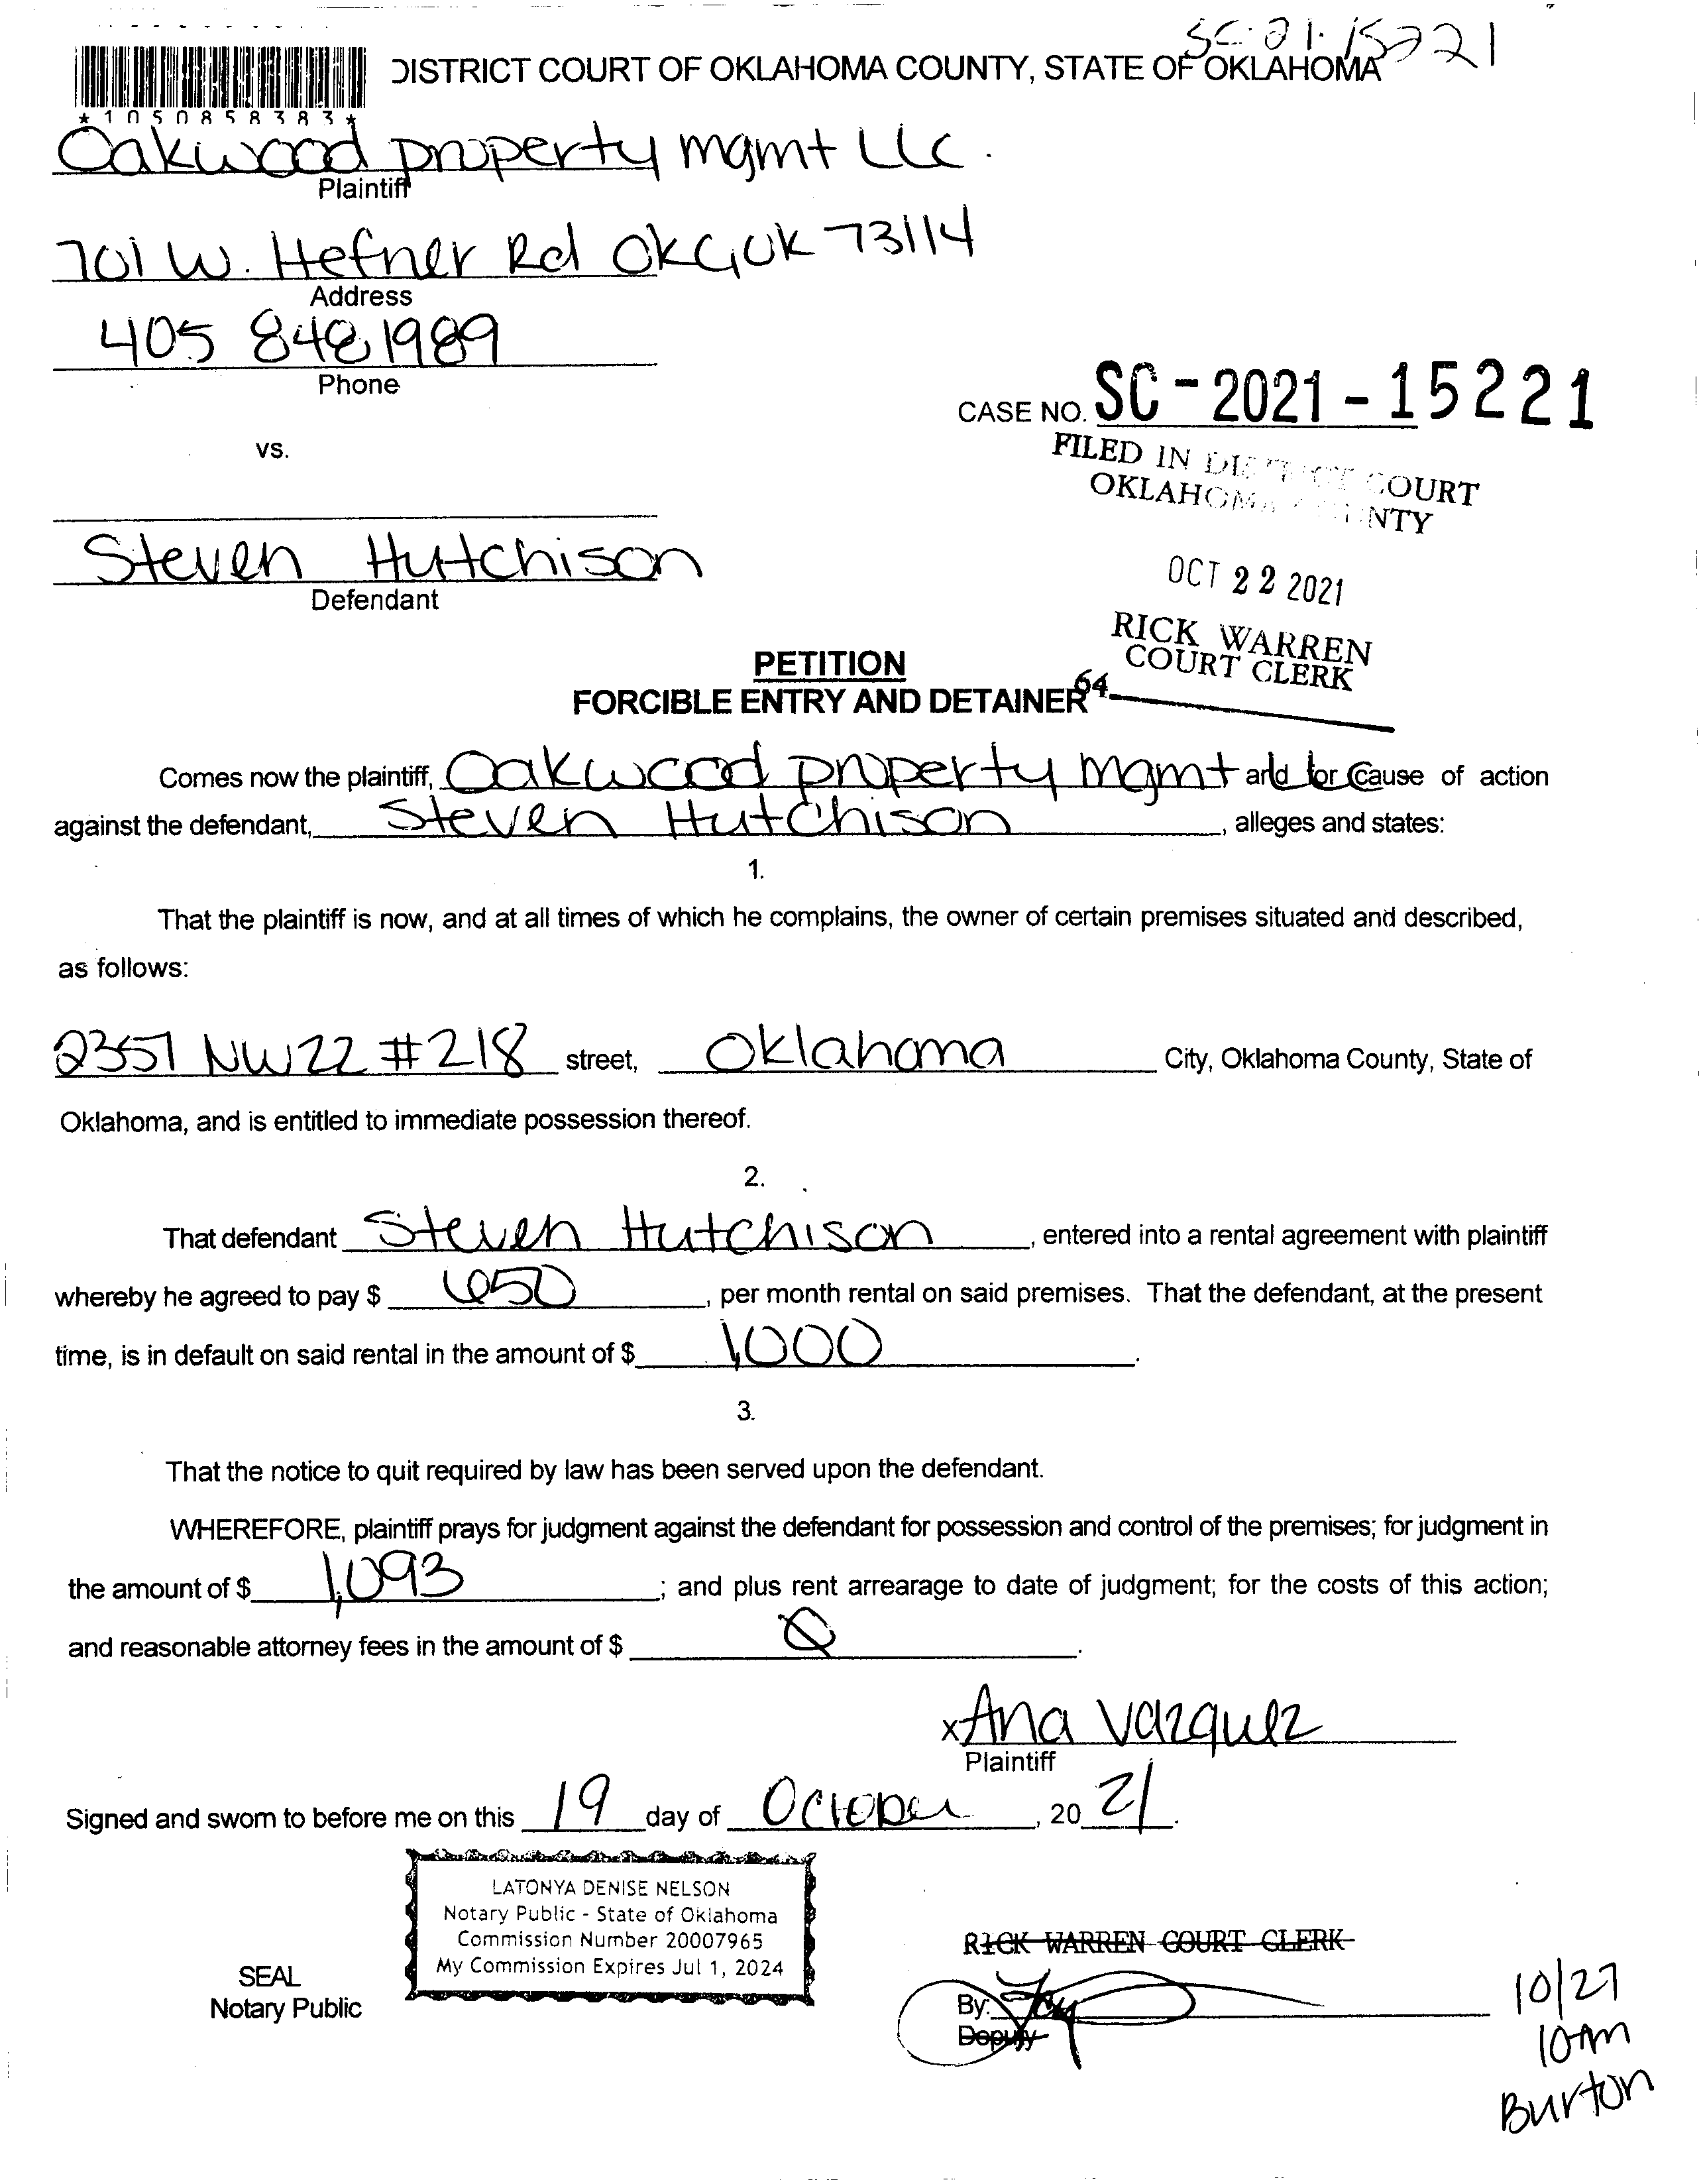 SC-21-15221
DISTRICT COURT OF OKLAHOMA COUNTY, STATE OF OKLAHOMA
*1050858383*
Oakwood property mgmt LLC.
Plaintiff
701 W. Hefner Rd OKC, OK 73114
Address
405 848 1989
Phone
CASE NO. SC-2021-15221
vs.
FILED IN DISTRICT COURT
OKLAHOMA COUNTY
Steven Hutchison
Defendant
OCT 22 2021
RICK WARREN
COURT CLERK
PETITION
FORCIBLE ENTRY AND DETAINER
64
Comes now the plaintiff, Oakwood property mgmt LLC and for cause of action
against the defendant, Steven Hutchison, alleges and states:
1.
That the plaintiff is now, and at all times of which he complains, the owner of certain premises situated and described,
as follows:
2357 NW 22 #218 street, Oklahoma City, Oklahoma County, State of
Oklahoma, and is entitled to immediate possession thereof.
2.
That defendant Steven Hutchison, entered into a rental agreement with plaintiff
whereby he agreed to pay $ 650, per month rental on said premises. That the defendant, at the present
time, is in default on said rental in the amount of $ 1,000.
3.
That the notice to quit required by law has been served upon the defendant.
WHEREFORE, plaintiff prays for judgment against the defendant for possession and control of the premises; for judgment in
the amount of $ 1,093; and plus rent arrearage to date of judgment; for the costs of this action;
and reasonable attorney fees in the amount of $ 0.
x Ana Vazquez
Plaintiff
Signed and sworn to before me on this 19 day of October, 20 21.
LATONYA DENISE NELSON
Notary Public - State of Oklahoma
Commission Number 20007965
My Commission Expires Jul 1, 2024
SEAL
Notary Public
RICK WARREN COURT CLERK
By:
Deputy
10/27
10am
Burton